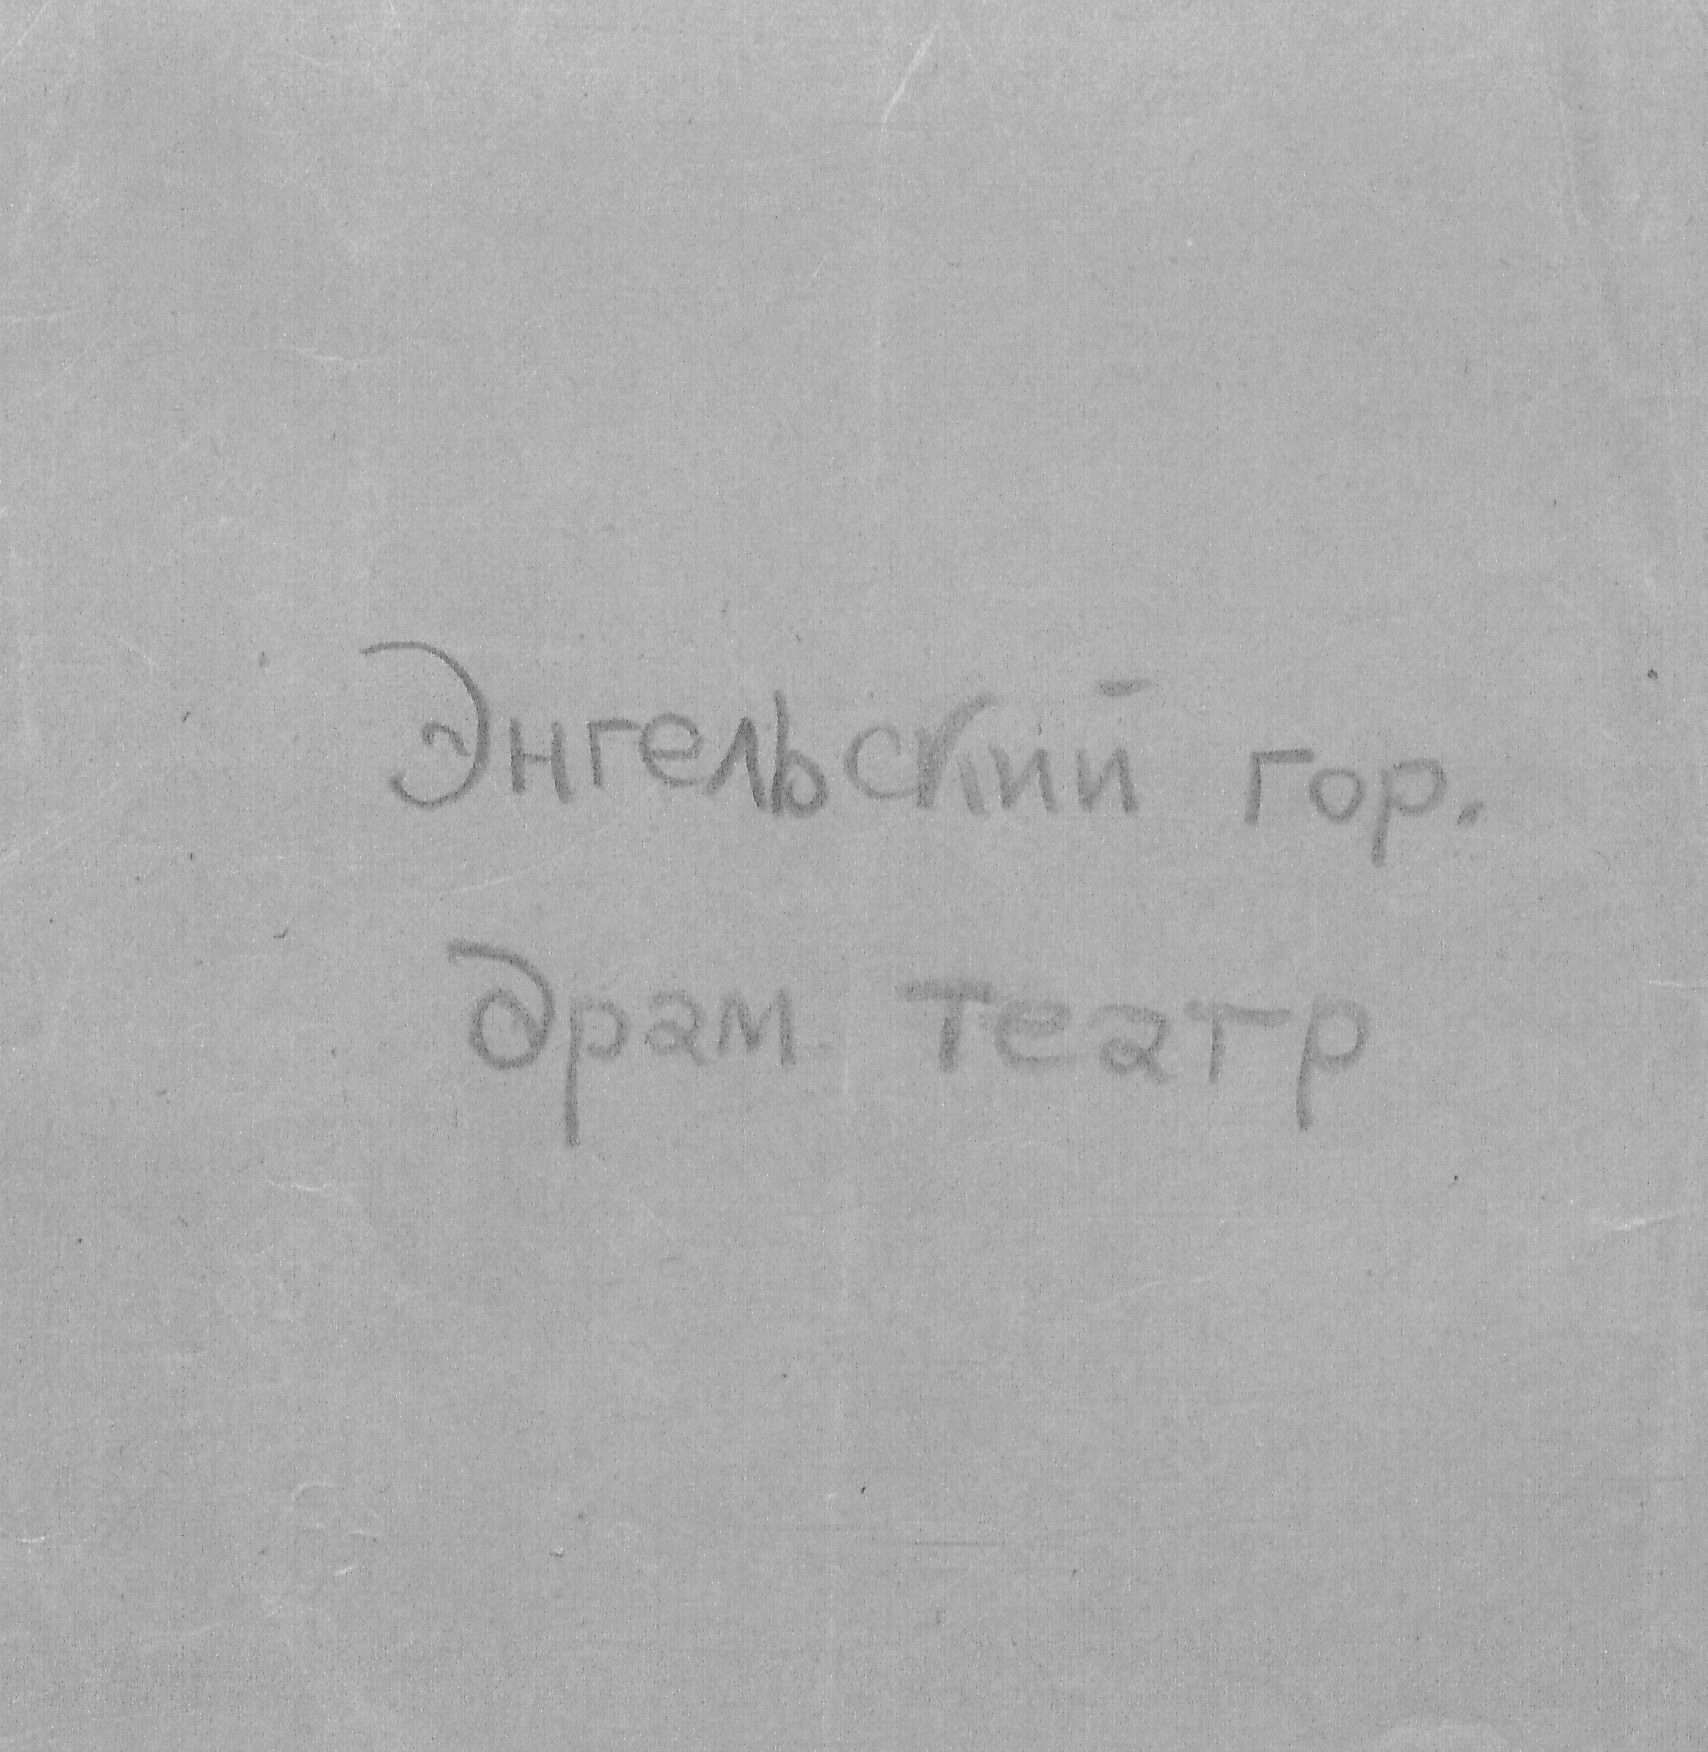 Энгельский гор.
драм театр